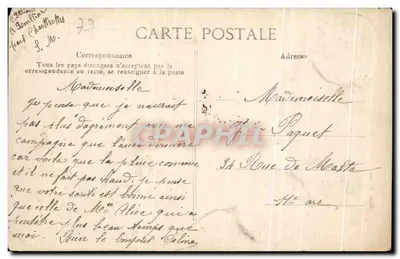 CARTE POSTALE
Correspondance
Tous les pays étrangers n'acceptent pas la
correspondance au recto, se renseigner à la poste
Adresse
Mademoiselle
je pense que je n'aurait
pas plus d'agrément avec ma
campagne que l'anée dernière
car voila que la pluie comence
et il ne fait pas chaud. Je pense
que votre santé est bonne ainsi
que celle de Mme Alice qui a
peutêtre plus beau temps que
moi. Bien le bonjour Céline
Mademoiselle
Paquet
34 Rue de Malta